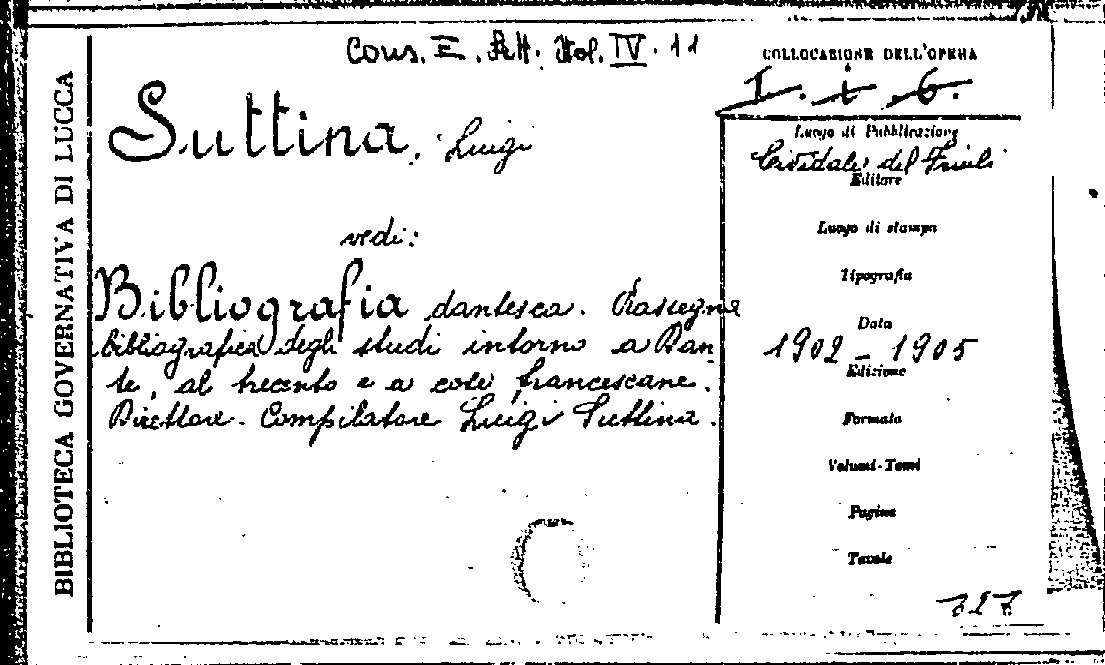 BIBLIOTECA GOVERNATIVA DI LUCCA
Cons. E. Lett. Ital. IV. 11
Suttina, Luigi
vedi:
Bibliografia dantesca. Rassegna
bibliografica degli studi intorno a Dan-
te, al trecento e a cose francescane.
Direttore. Compilatore Luigi Suttina.
COLLOCAZIONE DELL'OPERA
I. t 6.
Luogo di Pubblicazione
Cividale del Friuli
Editore
Luogo di stampa
Tipografia
Data
1902 - 1905
Edizione
Formato
Volumi-Tomi
Pagine
Tavole
727